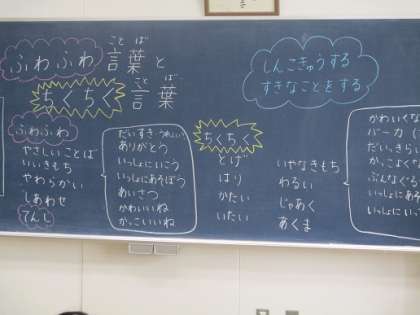 ふわふわ言葉と
こと ば
ちくちく言葉
こと ば
しんこきゅうする
すきなことをする
ふわふわ
やさしいことば
いいきもち
やわらかい
しあわせ
てんし
だいすき・うれしい
ありがとう
いっしょにいこう
いっしょにあそぼう
あいさつ
かわいいね
かっこいいね
ちくちく
とげ
はり
かたい
いたい
いやなきもち
わるい
じゃあく
あくま
かわいくな
バーカ
だいっきらい
かっこよく
ぶんなぐる
いっしょにあそ
いっしょにい